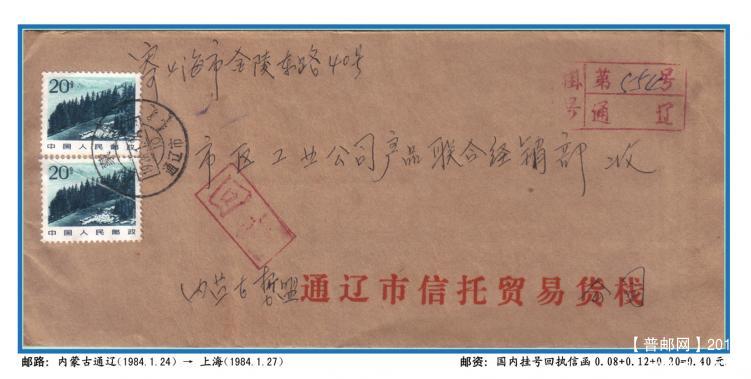 寄上海市金陵东路40号
国 第554号
号 通 辽
20分
中国人民邮政
20分
中国人民邮政
通辽市
市区工业公司产品联合经销部 收
回
内蒙古哲盟 通辽市信托贸易货栈
邮路：内蒙古通辽(1984.1.24) → 上海(1984.1.27)
邮资：国内挂号回执信函0.08+0.12+0.20=0.40元
【普邮网】201